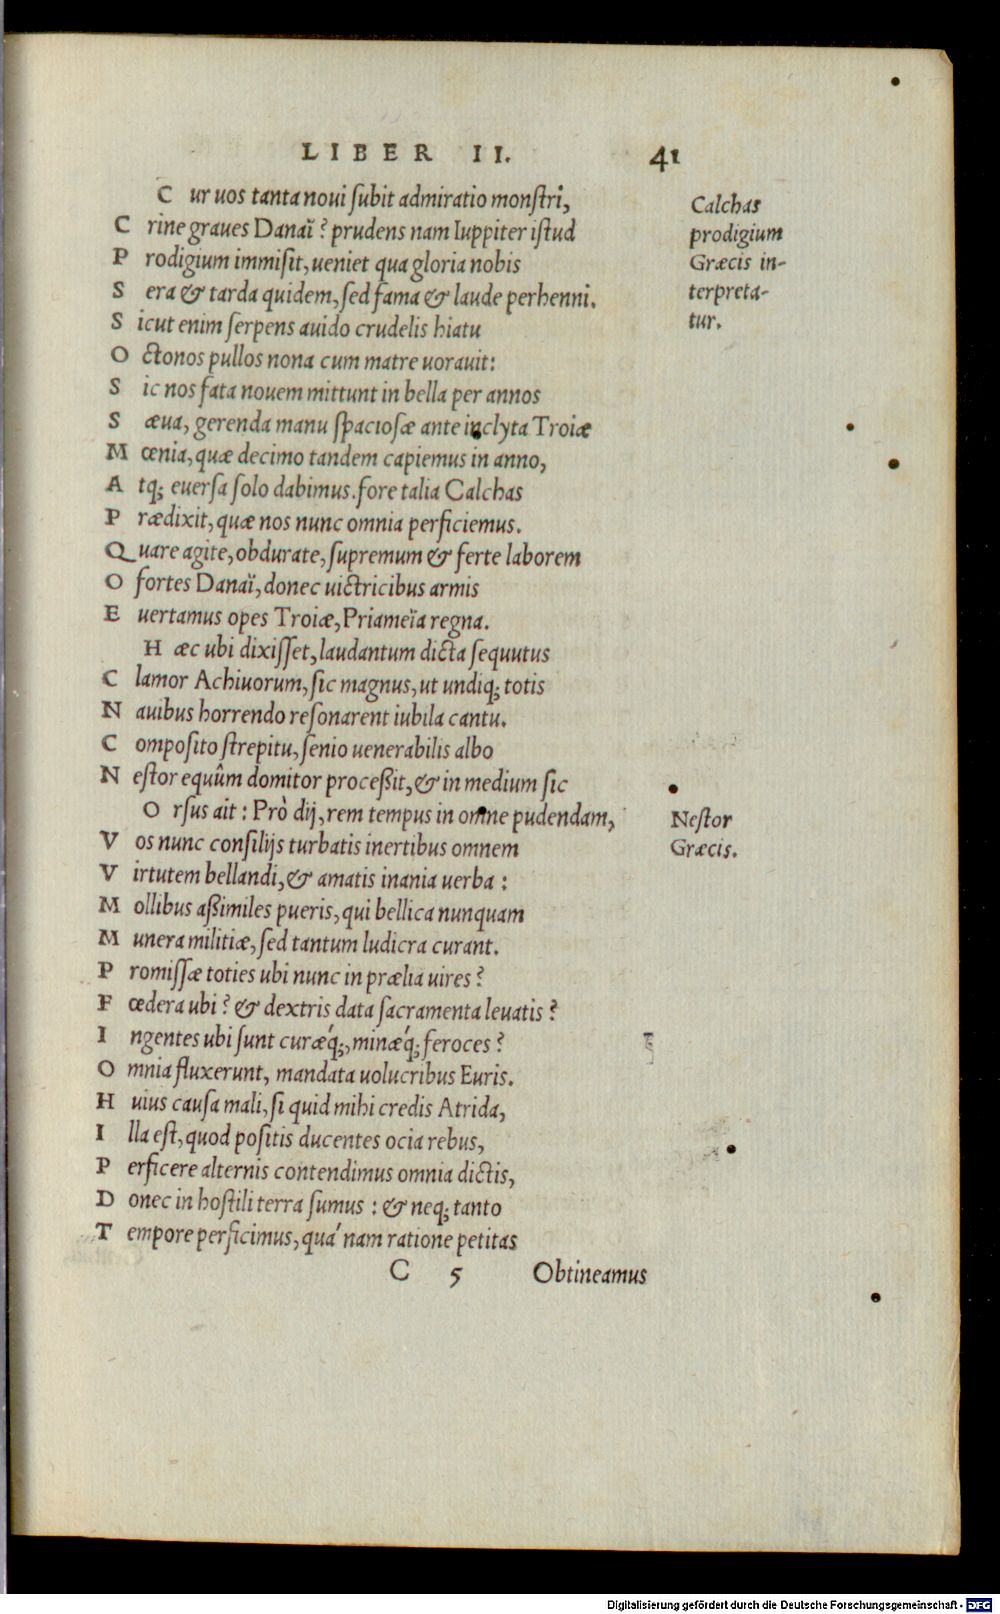 LIBER II. 41
Cur uos tanta noui ſubit admiratio monſtri,
Crine graues Danaï? prudens nam Iuppiter iſtud
Prodigium immiſit, ueniet qua gloria nobis
Sera & tarda quidem, ſed fama & laude perhenni.
Sicut enim ſerpens auido crudelis hiatu
Octonos pullos nona cum matre uorauit:
Sic nos fata nouem mittunt in bella per annos
Sæua, gerenda manu ſpacioſæ ante inclyta Troiæ
Mœnia, quæ decimo tandem capiemus in anno,
Atq; euerſa ſolo dabimus. fore talia Calchas
Prædixit, quæ nos nunc omnia perficiemus.
Quare agite, obdurate, ſupremum & ferte laborem
O fortes Danaï, donec uictricibus armis
Euertamus opes Troiæ, Priameïa regna.
Hæc ubi dixiſſet, laudantum dicta ſequutus
Clamor Achiuorum, ſic magnus, ut undiq; totis
Nauibus horrendo reſonarent iubila cantu.
Compoſito ſtrepitu, ſenio uenerabilis albo
Neſtor equûm domitor proceßit, & in medium ſic
Orſus ait: Prò dij, rem tempus in omne pudendam,
Vos nunc conſilijs turbatis inertibus omnem
Virtutem bellandi, & amatis inania uerba:
Mollibus aßimiles pueris, qui bellica nunquam
Munera militiæ, ſed tantum ludicra curant.
Promiſſæ toties ubi nunc in prælia uires?
Fœdera ubi? & dextris data ſacramenta leuatis?
Ingentes ubi ſunt curæq́;, minæq́; feroces?
Omnia fluxerunt, mandata uolucribus Euris.
Huius cauſa mali, ſi quid mihi credis Atrida,
Illa eſt, quod poſitis ducentes ocia rebus,
Perficere alternis contendimus omnia dictis,
Donec in hoſtili terra ſumus: & neq; tanto
Tempore perficimus, quá nam ratione petitas
C 5 Obtineamus
Calchas
prodigium
Græcis in-
terpreta-
tur.
Neſtor
Græcis.
Digitalisierung gefördert durch die Deutsche Forschungsgemeinschaft - DFG